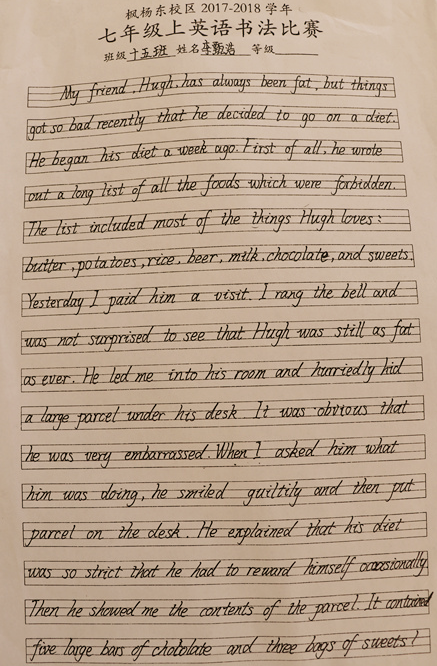 枫杨东校区 2017-2018 学年
七年级上英语书法比赛
班级 十五班 姓名 等级
My friend, Hugh, has always been fat, but things
got so bad recently that he decided to go on a diet.
He began his diet a week ago. First of all, he wrote
out a long list of all the foods which were forbidden.
The list included most of the things Hugh loves:
butter, potatoes, rice, beer, milk, chocolate, and sweets.
Yesterday I paid him a visit. I rang the bell and
was not surprised to see that Hugh was still as fat
as ever. He led me into his room and hurriedly hid
a large parcel under his desk. It was obvious that
he was very embarrassed. When I asked him what
him was doing, he smiled guiltily and then put
parcel on the desk. He explained that his diet
was so strict that he had to reward himself occasionally.
Then he showed me the contents of the parcel. It contained
five large bars of chocolate and three bags of sweets!